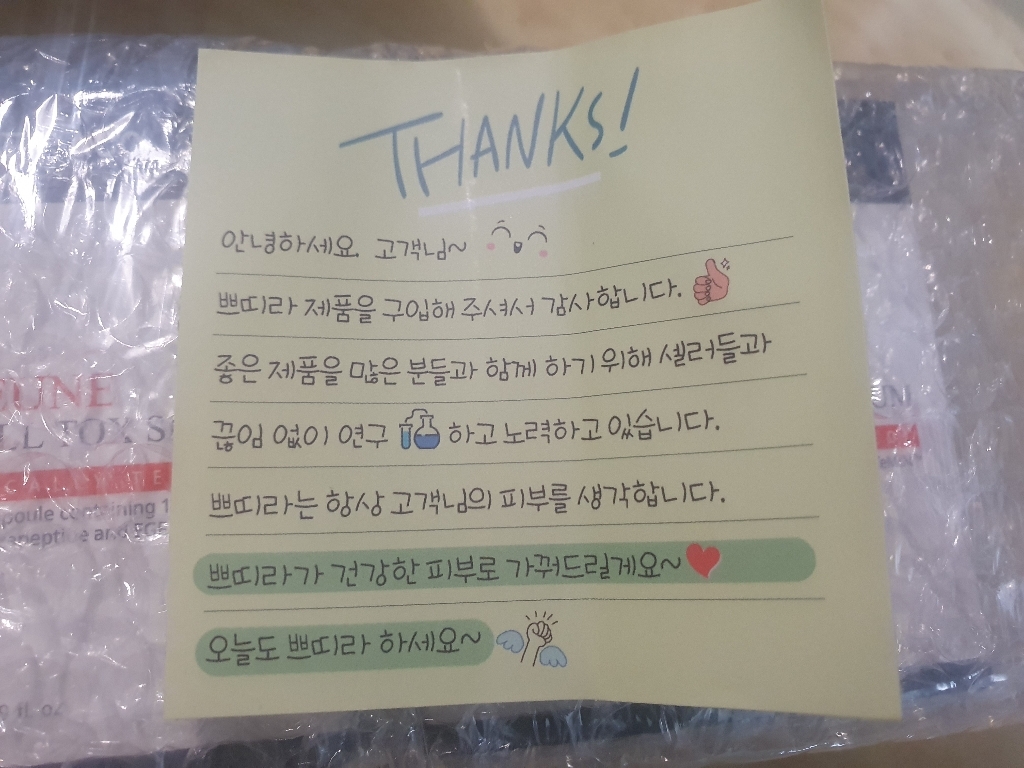 THANKS!
안녕하세요 고객님~
쁘띠라 제품을 구입해 주셔서 감사합니다.
좋은 제품을 많은 분들과 함께 하기 위해 셀러들과
끊임 없이 연구 하고 노력하고 있습니다.
쁘띠라는 항상 고객님의 피부를 생각합니다.
쁘띠라가 건강한 피부로 가꿔드릴게요~
오늘도 쁘띠라 하세요~
JUNE
TOX
fl oz